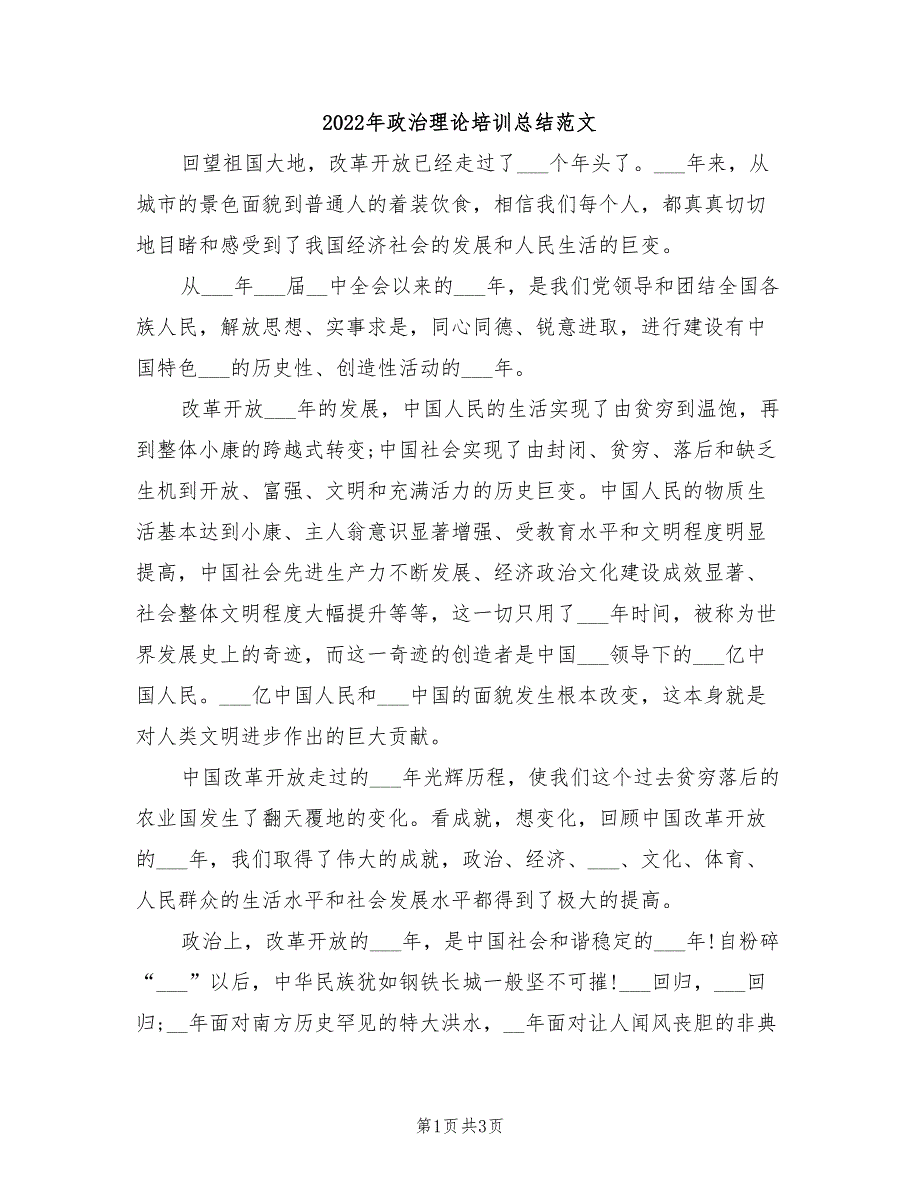 2022年政治理论培训总结范文
回望祖国大地，改革开放已经走过了___个年头了。___年来，从
城市的景色面貌到普通人的着装饮食，相信我们每个人，都真真切切
地目睹和感受到了我国经济社会的发展和人民生活的巨变。
从___年___届__中全会以来的___年，是我们党领导和团结全国各
族人民，解放思想、实事求是，同心同德、锐意进取，进行建设有中
国特色___的历史性、创造性活动的___年。
改革开放___年的发展，中国人民的生活实现了由贫穷到温饱，再
到整体小康的跨越式转变;中国社会实现了由封闭、贫穷、落后和缺乏
生机到开放、富强、文明和充满活力的历史巨变。中国人民的物质生
活基本达到小康、主人翁意识显著增强、受教育水平和文明程度明显
提高，中国社会先进生产力不断发展、经济政治文化建设成效显著、
社会整体文明程度大幅提升等等，这一切只用了___年时间，被称为世
界发展史上的奇迹，而这一奇迹的创造者是中国___领导下的___亿中
国人民。___亿中国人民和___中国的面貌发生根本改变，这本身就是
对人类文明进步作出的巨大贡献。
中国改革开放走过的___年光辉历程，使我们这个过去贫穷落后的
农业国发生了翻天覆地的变化。看成就，想变化，回顾中国改革开放
的___年，我们取得了伟大的成就，政治、经济、___、文化、体育、
人民群众的生活水平和社会发展水平都得到了极大的提高。
政治上，改革开放的___年，是中国社会和谐稳定的___年!自粉碎
“___”以后，中华民族犹如钢铁长城一般坚不可摧!___回归，___回
归;__年面对南方历史罕见的特大洪水，__年面对让人闻风丧胆的非典
第1页共3页